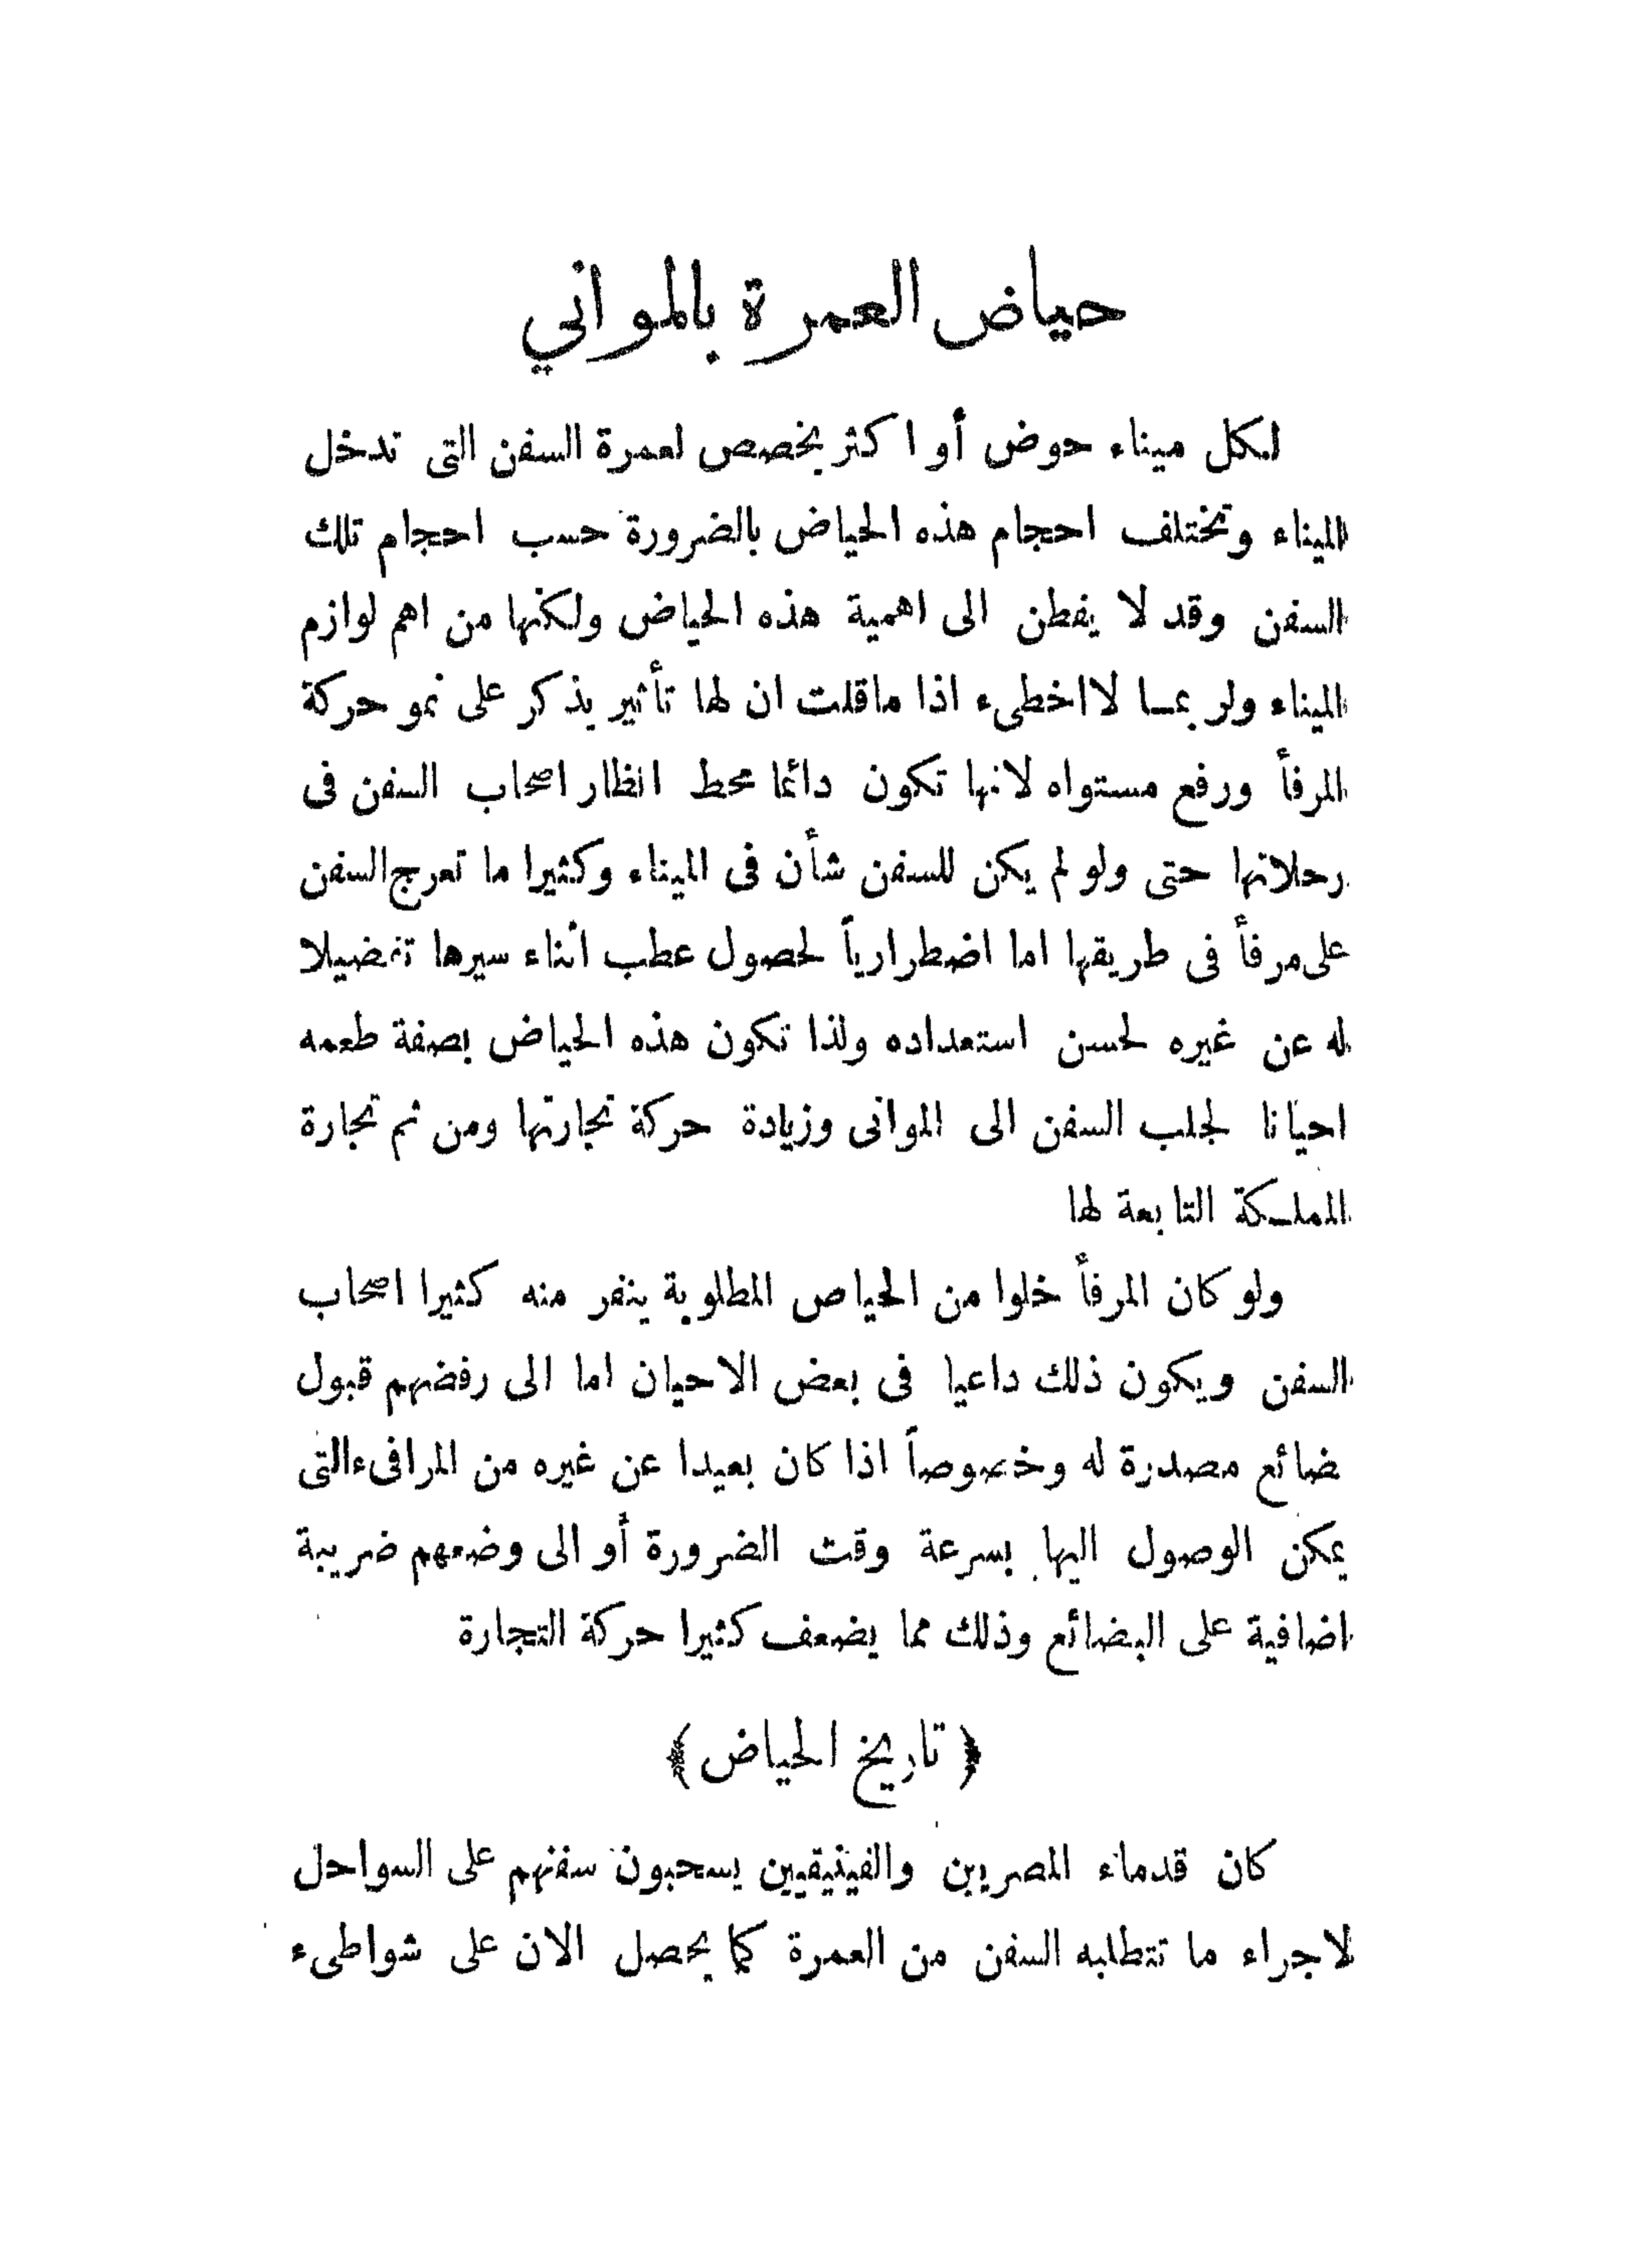 حياض العمرة بالمواني
لكل ميناء حوض أو اكثر يخصص لعمرة السفن التى تدخل
الميناء وتختلف احجام هذه الحياض بالضرورة حسب احجام تلك
السفن وقد لا يفطن الى اهمية هذه الحياض ولكنها من اهم لوازم
الميناء ولربما لا اخطىء اذا ماقلت ان لها تأثير يذكر على نمو حركة
المرفأ ورفع مستواه لانها تكون دائما محط انظار اصحاب السفن فى
رحلاتها حتى ولو لم يكن للسفن شأن فى الميناء وكثيرا ما تعرج السفن
على مرفأ فى طريقها اما اضطرارياً لحصول عطب اثناء سيرها تفضيلا
له عن غيره لحسن استعداده ولذا تكون هذه الحياض بصفة طعمه
احيانا لجلب السفن الى الموانى وزيادة حركة تجارتها ومن ثم تجارة
المملكة التابعة لها
ولو كان المرفأ خلوا من الحياص المطلوبة ينفر منه كثيرا اصحاب
السفن ويكون ذلك داعيا فى بعض الاحيان اما الى رفضهم قبول
ضائع مصدرة له وخصوصاً اذا كان بعيدا عن غيره من المرافىء التى
يمكن الوصول اليها بسرعة وقت الضرورة أو الى وضعهم ضريبة
اضافية على البضائع وذلك مما يضعف كثيرا حركة التجارة
﴿ تاريخ الحياض ﴾
كان قدماء المصريين والفينيقيين يسحبون سفنهم على السواحل
لاجراء ما تتطلبه السفن من العمرة كما يحصل الان على شواطىء